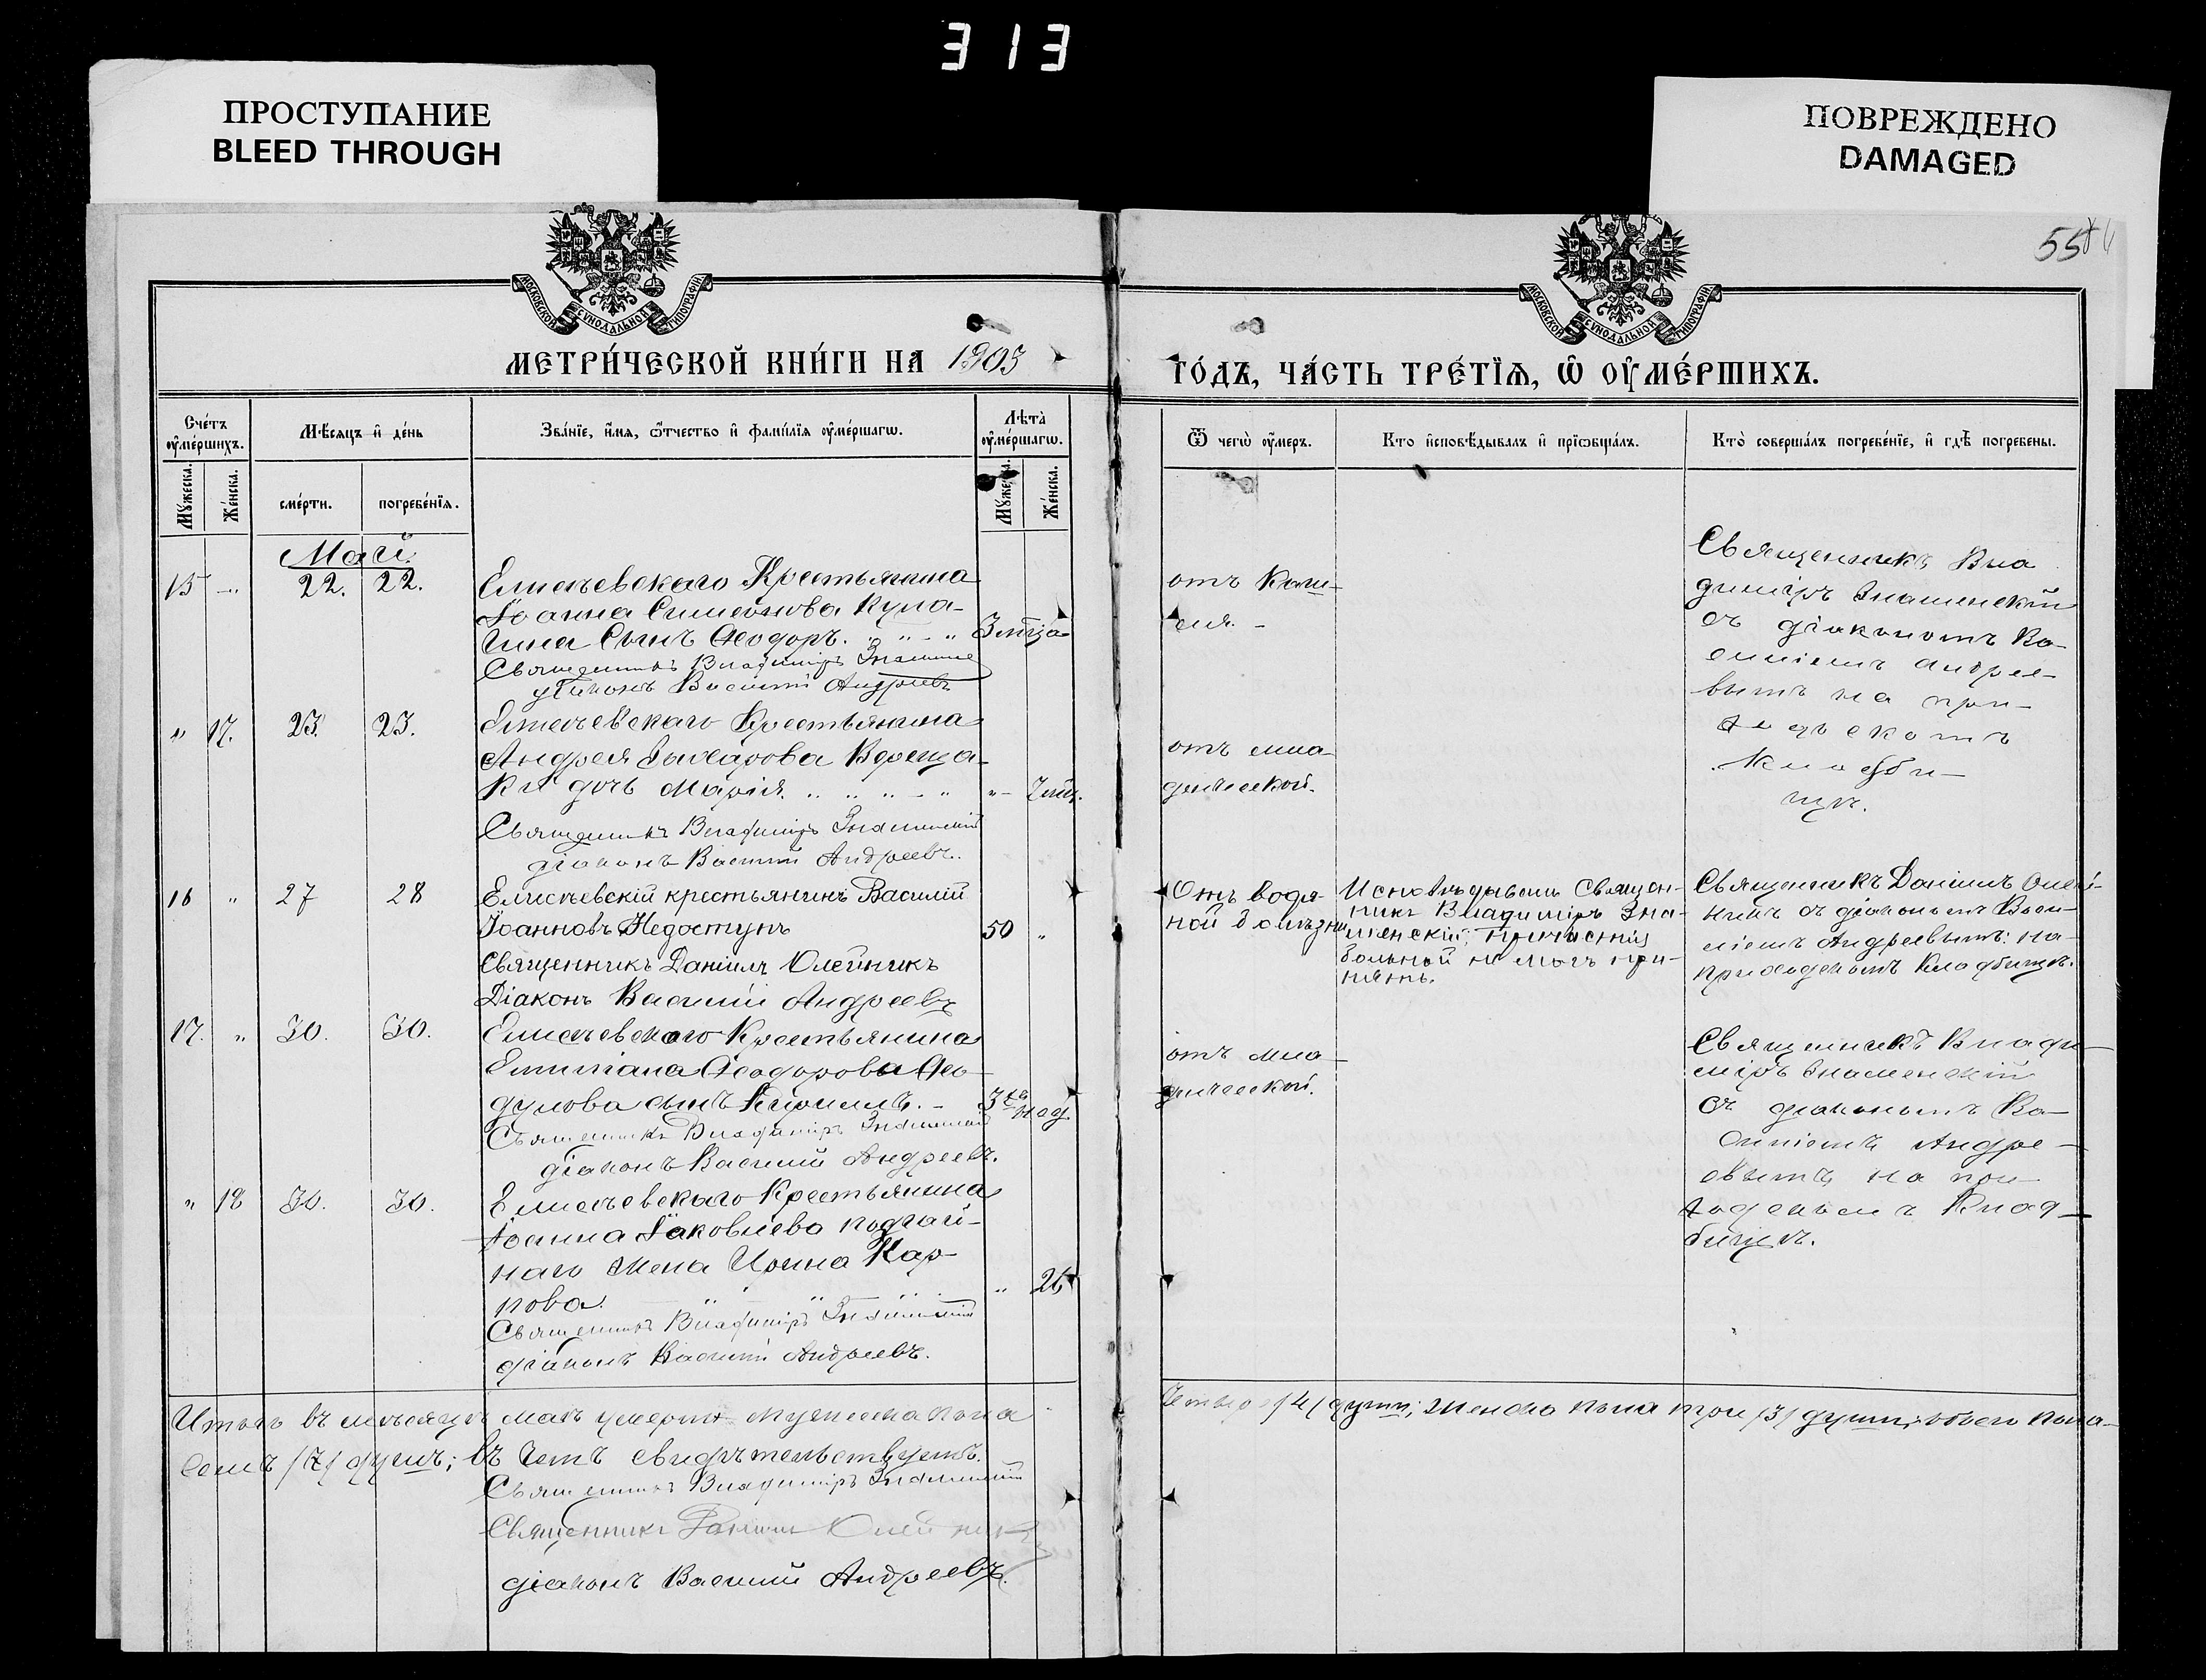 313
ПРОСТУПАНИЕ
BLEED THROUGH
ПОВРЕЖДЕНО
DAMAGED
МОСКОВСКОЙ СѴНОДАЛЬНОЙ ТИПОГРАФІИ
МОСКОВСКОЙ СѴНОДАЛЬНОЙ ТИПОГРАФІИ
МЕТРИ́ЧЕСКОЙ КНИ́ГИ НА 1903
ГО́ДЪ, ЧА́СТЬ ТРЕ́ТІѦ, Ѽ ОУ҆МЕ́РШИХЪ.
Сче́тъ оу҆ме́ршихъ.
Мѣ́сяцъ и҆ де́нь
Зва́нїе, и҆́мя, ѻ҆́тчество и҆ фами́лїя оу҆ме́ршагѡ.
Лѣта̀ оу҆ме́ршагѡ.
Ѿ чегѡ̀ оу҆́меръ.
Кто и҆сповѣ́дывалъ и҆ прїѡбща́лъ.
Кто̀ соверша́лъ погребе́нїе, и҆ гдѣ̀ погребены.
Мꙋ́жеска.
Же́нска.
сме́рти.
погребе́нїѧ.
Мꙋ́жеска.
Же́нска.
Май
15 " 22. 22. Елисѣевскаго Крестьянина
Іоанна Симеонова Кула-
гина Сынъ Ѳеодоръ. 3 мѣсяца
Священникъ Владиміръ Знаменскій
діаконъ Василій Андреевъ
отъ Каш-
ля.
Священникъ Вла
диміръ Знаменскій
съ діакономъ Ва-
силіемъ Андрее-
вымъ на при-
ходскомъ
кладби-
щѣ.
" 17. 23. 23. Елисѣевскаго Крестьянина
Андрея Захарова Вереща-
ки дочь Марія. " 7 мѣс.
Священникъ Владиміръ Знаменскій
діаконъ Василій Андреевъ.
отъ мла-
денческой.
16 " 27 28 Елисѣевскій крестьянинъ Василій
Іоанновъ Недоступъ 50 "
Священникъ Даніилъ Олейникъ
Діаконъ Василій Андреевъ
Отъ водя-
ной болѣзни
Исповѣдывалъ Священ-
никъ Владиміръ Зна-
менскій; причастія
больной не могъ при-
нять.
Священникъ Даніилъ Олей-
никъ съ діакономъ Васи-
ліемъ Андреевымъ: на
приходскомъ кладбищѣ.
17. " 30. 30. Елисѣевскаго Крестьянина
Емиліана Ѳеодорова Ѳео-
дулова сынъ Кириллъ. 3 хъ нед.
Священникъ Владиміръ Знаменскій
діаконъ Василій Андреевъ.
отъ мла-
денческой.
Священникъ Влади-
міръ Знаменскій
съ діакономъ Ва-
силіемъ Андре-
евымъ на при-
ходскомъ Клад-
бищѣ.
" 18 30. 30. Елисѣевскаго Крестьянина
Іоанна Іаковлева Подгай-
наго жена Ирина Кар-
пова. " 26
Священникъ Владиміръ Знаменскій
діаконъ Василій Андреевъ.
Итого въ мѣсяцѣ маѣ умерло мужеска пола
четыре /4/ души; женска пола три /3/ души; обоего пола
семь /7/ душъ; въ чемъ свидѣтельствуемъ.
Священникъ Владиміръ Знаменскій
Священникъ Даніилъ Олейникъ
діаконъ Василій Андреевъ.